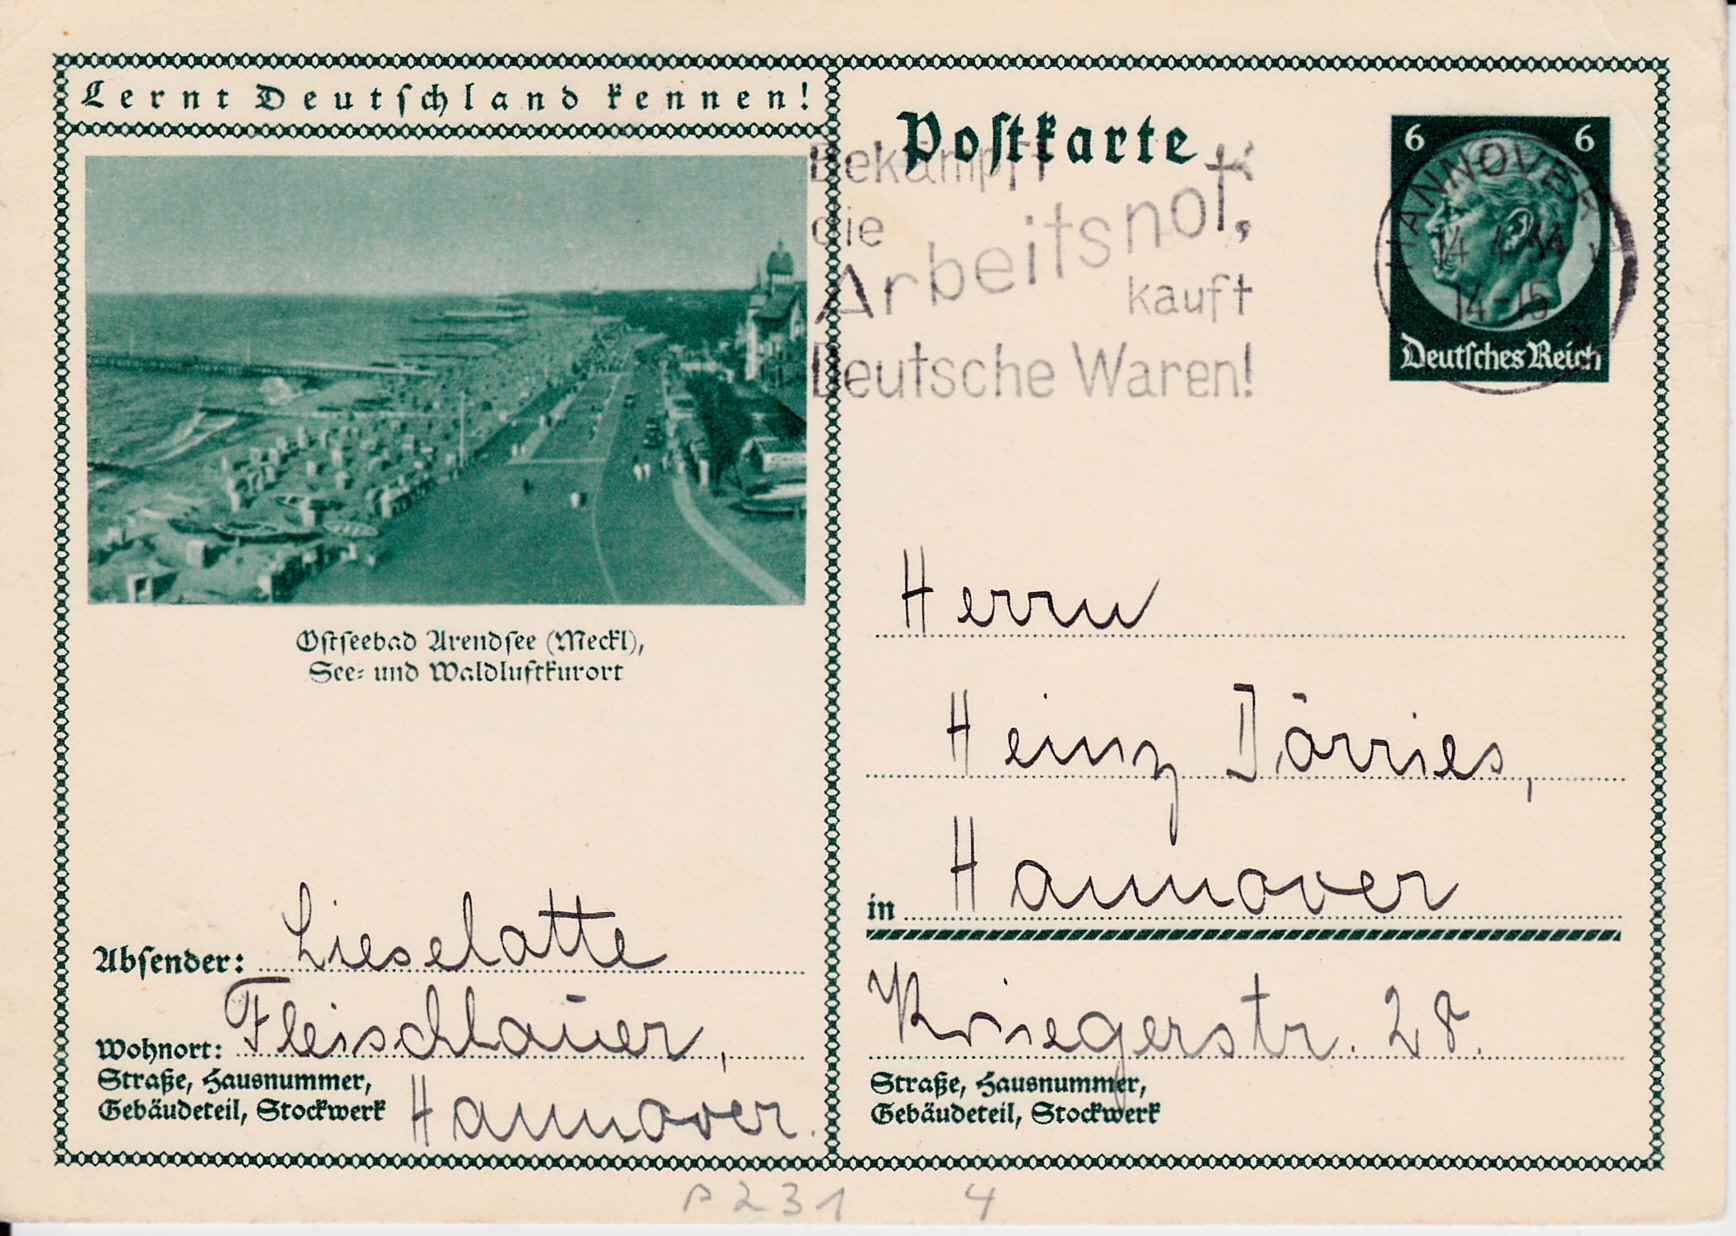 Lernt Deutschland kennen!
Ostseebad Arendsee (Meckl),
See- und Waldluftkurort
Absender: Lieselotte
Wohnort: Fleischhauer,
Straße, Hausnummer,
Gebäudeteil, Stockwerk
Hannover.
Postkarte
Bekämpft
die
Arbeitsnot,
kauft
Deutsche Waren!
6 6
HANNOVER
14 4 34
14-15
Deutsches Reich
Herrn
Heinz Dörries,
in Hannover
Kriegerstr. 28.
Straße, Hausnummer,
Gebäudeteil, Stockwerk
P231 4